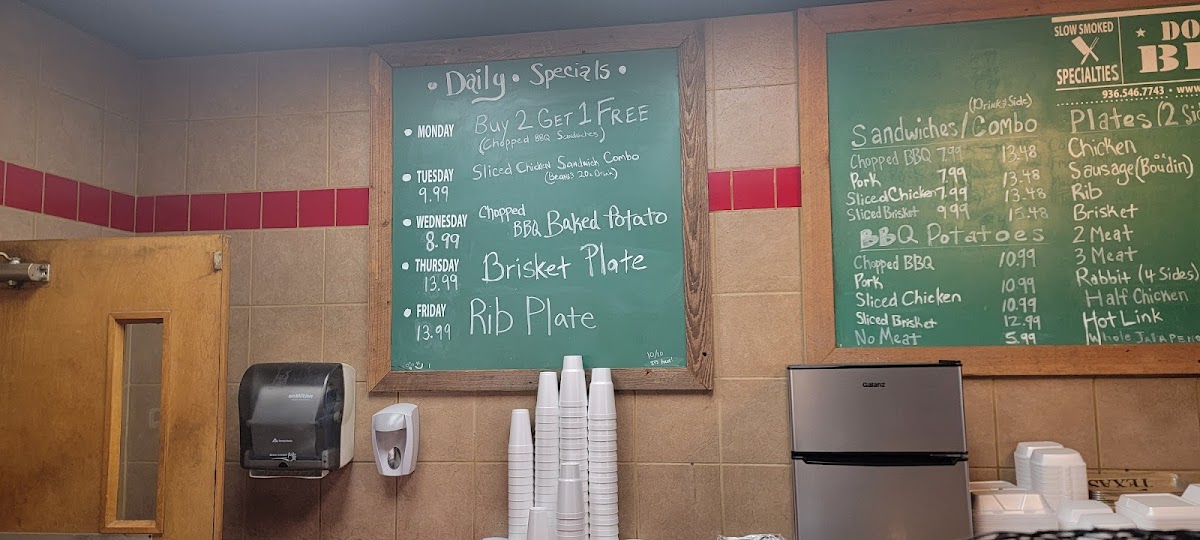 • Daily • Specials •
• MONDAY Buy 2 Get 1 FREE
(Chopped BBQ Sandwiches)
• TUESDAY Sliced Chicken Sandwich Combo
9.99
• WEDNESDAY Chopped
8.99 BBQ Baked Potato
• THURSDAY Brisket Plate
13.99
• FRIDAY Rib Plate
13.99
10/10
SLOW SMOKED
SPECIALTIES
★ DO
936.546.7743 • www.
(Drink & Side)
Sandwiches/Combo
Chopped BBQ 7.99 13.48
Pork 7.99 13.48
Sliced Chicken 7.99 13.48
Sliced Brisket 9.99 15.48
BBQ Potatoes
Chopped BBQ 10.99
Pork 10.99
Sliced Chicken 10.99
Sliced Brisket 12.99
No Meat 5.99
Plates (2
Chicken
Sausage (Boudin)
Rib
Brisket
2 Meat
3 Meat
Rabbit (4 Sides)
Half Chicken
Hot Link
Whole
Galanz
TEXAS